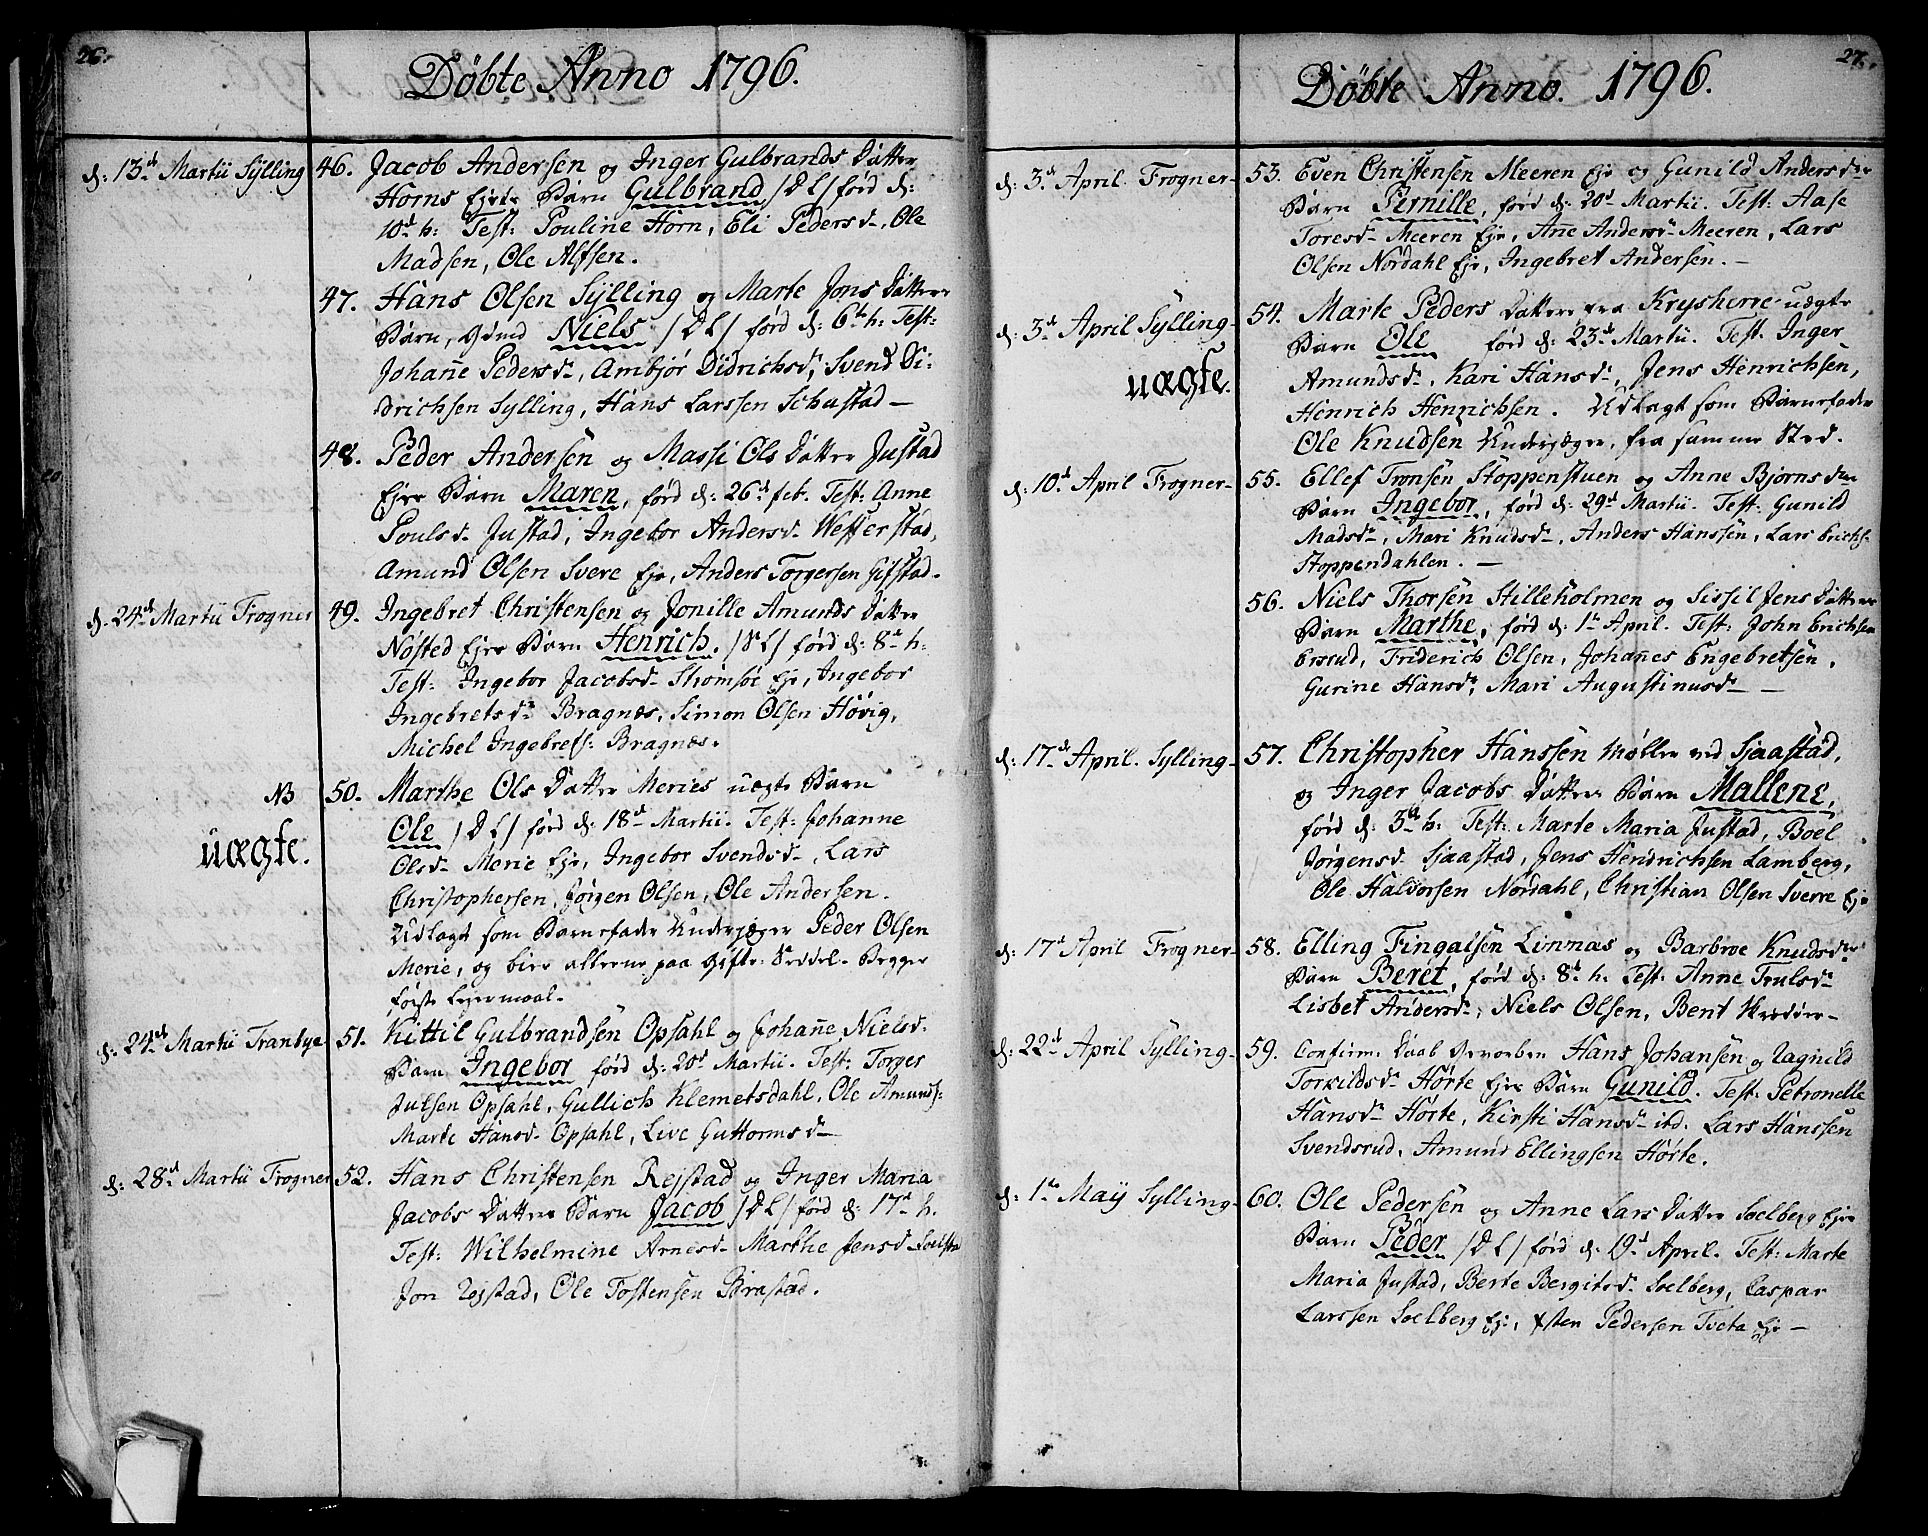 26.
Döbte Anno 1796.
d: 13de Martii Sylling 46. Jacob Andersen og Inger Gulbrands Datter
Horns Ejes Barn Gulbrand /DL/ förd d:
10d h: Test: Pouline Horn, Eli Pedersd., Ole
Madsen, Ole Alfsen.
47. Hans Olsen Sylling og Marte Jons Datters
Barn, Niels /DL/ förd d: 6te h: Test:
Johanne Pedersdr, Ambjör Didrichsdr, Svend Di-
drichsen Sylling, Hans Larssen Schustad —
48. Peder Andersen og Massi Ols Datter Justad
Ejes Barn Maren, förd d: 26d feb. Test: Anne
Poulsd. Justad, Ingebor Andersd. Wefferstad,
Amund Olsen Svere Eje, Anders Torgersen Gifstad.
d. 24de Martii Frogner 49. Ingebret Christensen og Jonille Amunds Datter
Nösted Ejes Barn Henrich. /DL/ förd d: 8de h:
Test: Ingebor Jacobsd. Strömsöe Eje, Ingebor
Ingebretsdr Bragnæs, Simon Olsen Hövig,
Michel Ingebrets: Bragnæs.
NB 50. Marthe Ols Datter Meries uægte Barn
uægte. Ole /DL/ förd d: 18de Martii. Test: Johanne
Olsd. Merie Eje, Ingebor Svendsd., Lars
Christophersen, Jörgen Olsen, Ole Andersen.
Udlagt som Barnefader Underjæger Peder Olsen
Merie, og bier allerne paa Gifte Seddel. Begges
første Lejermaal.
d: 24de Martii Tranbye 51. Kittil Gulbrandsen Opsahl og Johanne Nielsd.
Barn Ingebor förd d: 20d Martii. Test: Torger
Julsen Opsahl, Gullich Klemetsdahl, Ole Amunds:
Marte Hansd. Opsahl, Live Guttormsd.
d: 28d Martii Frogner 52. Hans Christensen Rejstad og Inger Maria
Jacobs Datters Barn Jacob /DL/ förd d: 17d h.
Test: Wilhelmine Arnesd. Marthe Jensd
Jon Rejstad, Ole Tostensen Brastad.
27.
Döbte Anno. 1796.
d: 3de April. Frogner 53. Even Christensen Meeren Eje og Gunild Andersdr
Barn Pernille, förd d: 20d Martii. Test: Aase
Toresd. Meeren Eje, Anne Andersd. Meeren, Lars
Olsen Nordahl Eje, Ingebret Andersen. —
d: 3de April Sylling 54. Marte Peders Datter fra Krysherre uægte
Barn Ole förd d: 23de Martii. Test. Inger
uægte. Amundsdr, Kari Hansdr, Jens Henrichsen,
Henrich Henrichsen. Udlagt som Barnefader
Ole Knudsen Underjæger, fra samme Sted.
d: 10d April Frogner 55. Ellef Tronsen Stoppenstuen og Anne Bjornsdr
Barn Ingebor, förd d: 29d Martii. Test: Gunild
Madsdr, Mari Knudsd., Anders Hanssen, Lars Erichs:
Stoppendahlen. —
56. Niels Thorsen Hilleholmen og Sissil Jens Datters
Barn Marthe, förd d: 1te April. Test: John Erichsen
Friderich Olsen, Johanes Engebretsen,
Gurine Hansdr, Mari Augustinusdr —
d: 17de April. Sylling 57. Christopher Hanssen Møller ved Sjaastad,
og Inger Jacobs Datters Barn Mallene,
förd d: 3de h: Test: Marte Maria Justad, Boel
Jörgensd. Sjaastad, Jens Hendrichsen Lamberg,
Ole Haldorsen Nordahl, Christian Olsen Sverre Eje
d: 17d April Frogner 58. Elling Fingalsen Linnæs og Barbroe Knudsdr
Barn Beret, förd d: 8de h. Test: Anne Trulsdr
Lisbet Andersdr, Niels Olsen, Bent
d: 22de April Sylling 59. Confirm: Daab Hans Johansen og Ragnild
Torkildsdr Hörte Ejes Barn Gunild. Test: Petronelle
Hansdr Hörte, Kirsti Hansdr itd. Lars Hanssen
Svendsrud, Amund Ellingsen Hörte.
d: 1te Maÿ Sylling 60. Ole Pedersen og Anne Lars Datter Soelberg Eje
Barn Peder /DL/ förd d: 19d April. Test: Marte
Maria Justad, Berte Bergitsd. Soelberg, Caspar
Larssen Soelberg Ej:, Pedersen Tveta Eje —